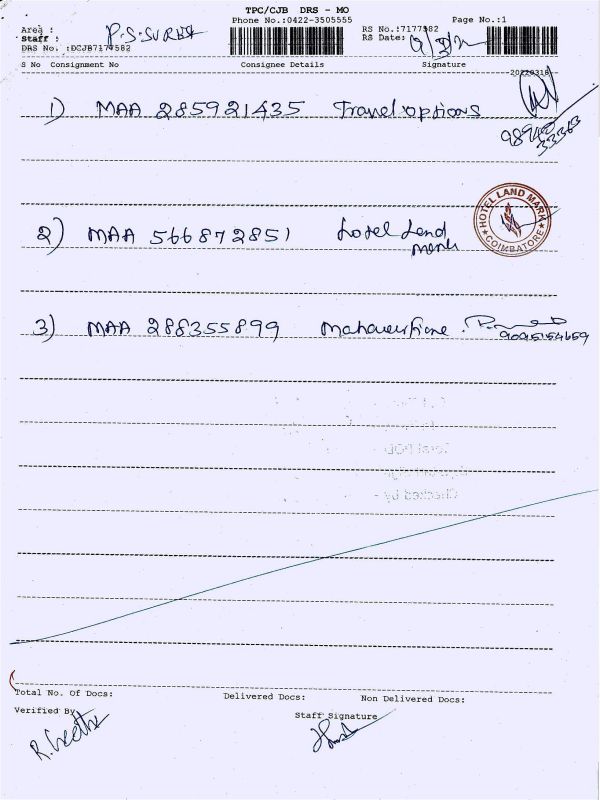 TPC/CJB DRS - MO
Phone No.:0422-3505555
Page No.:1
Area :
Staff : P.S.SURESH
DRS No. :DCJB7177582
RS No.:7177582
RS Date:
S No Consignment No Consignee Details Signature
20220318
1) MAA 285921435 Travel options
98940
33363
2) MAA 566872851 Hotel Land
mark
HOTEL LAND MARK
COIMBATORE
3) MAA 288355899
9095154659
Total POD
Checked by -
Total No. Of Docs: Delivered Docs: Non Delivered Docs:
Verified By
Staff Signature
R. Geetha